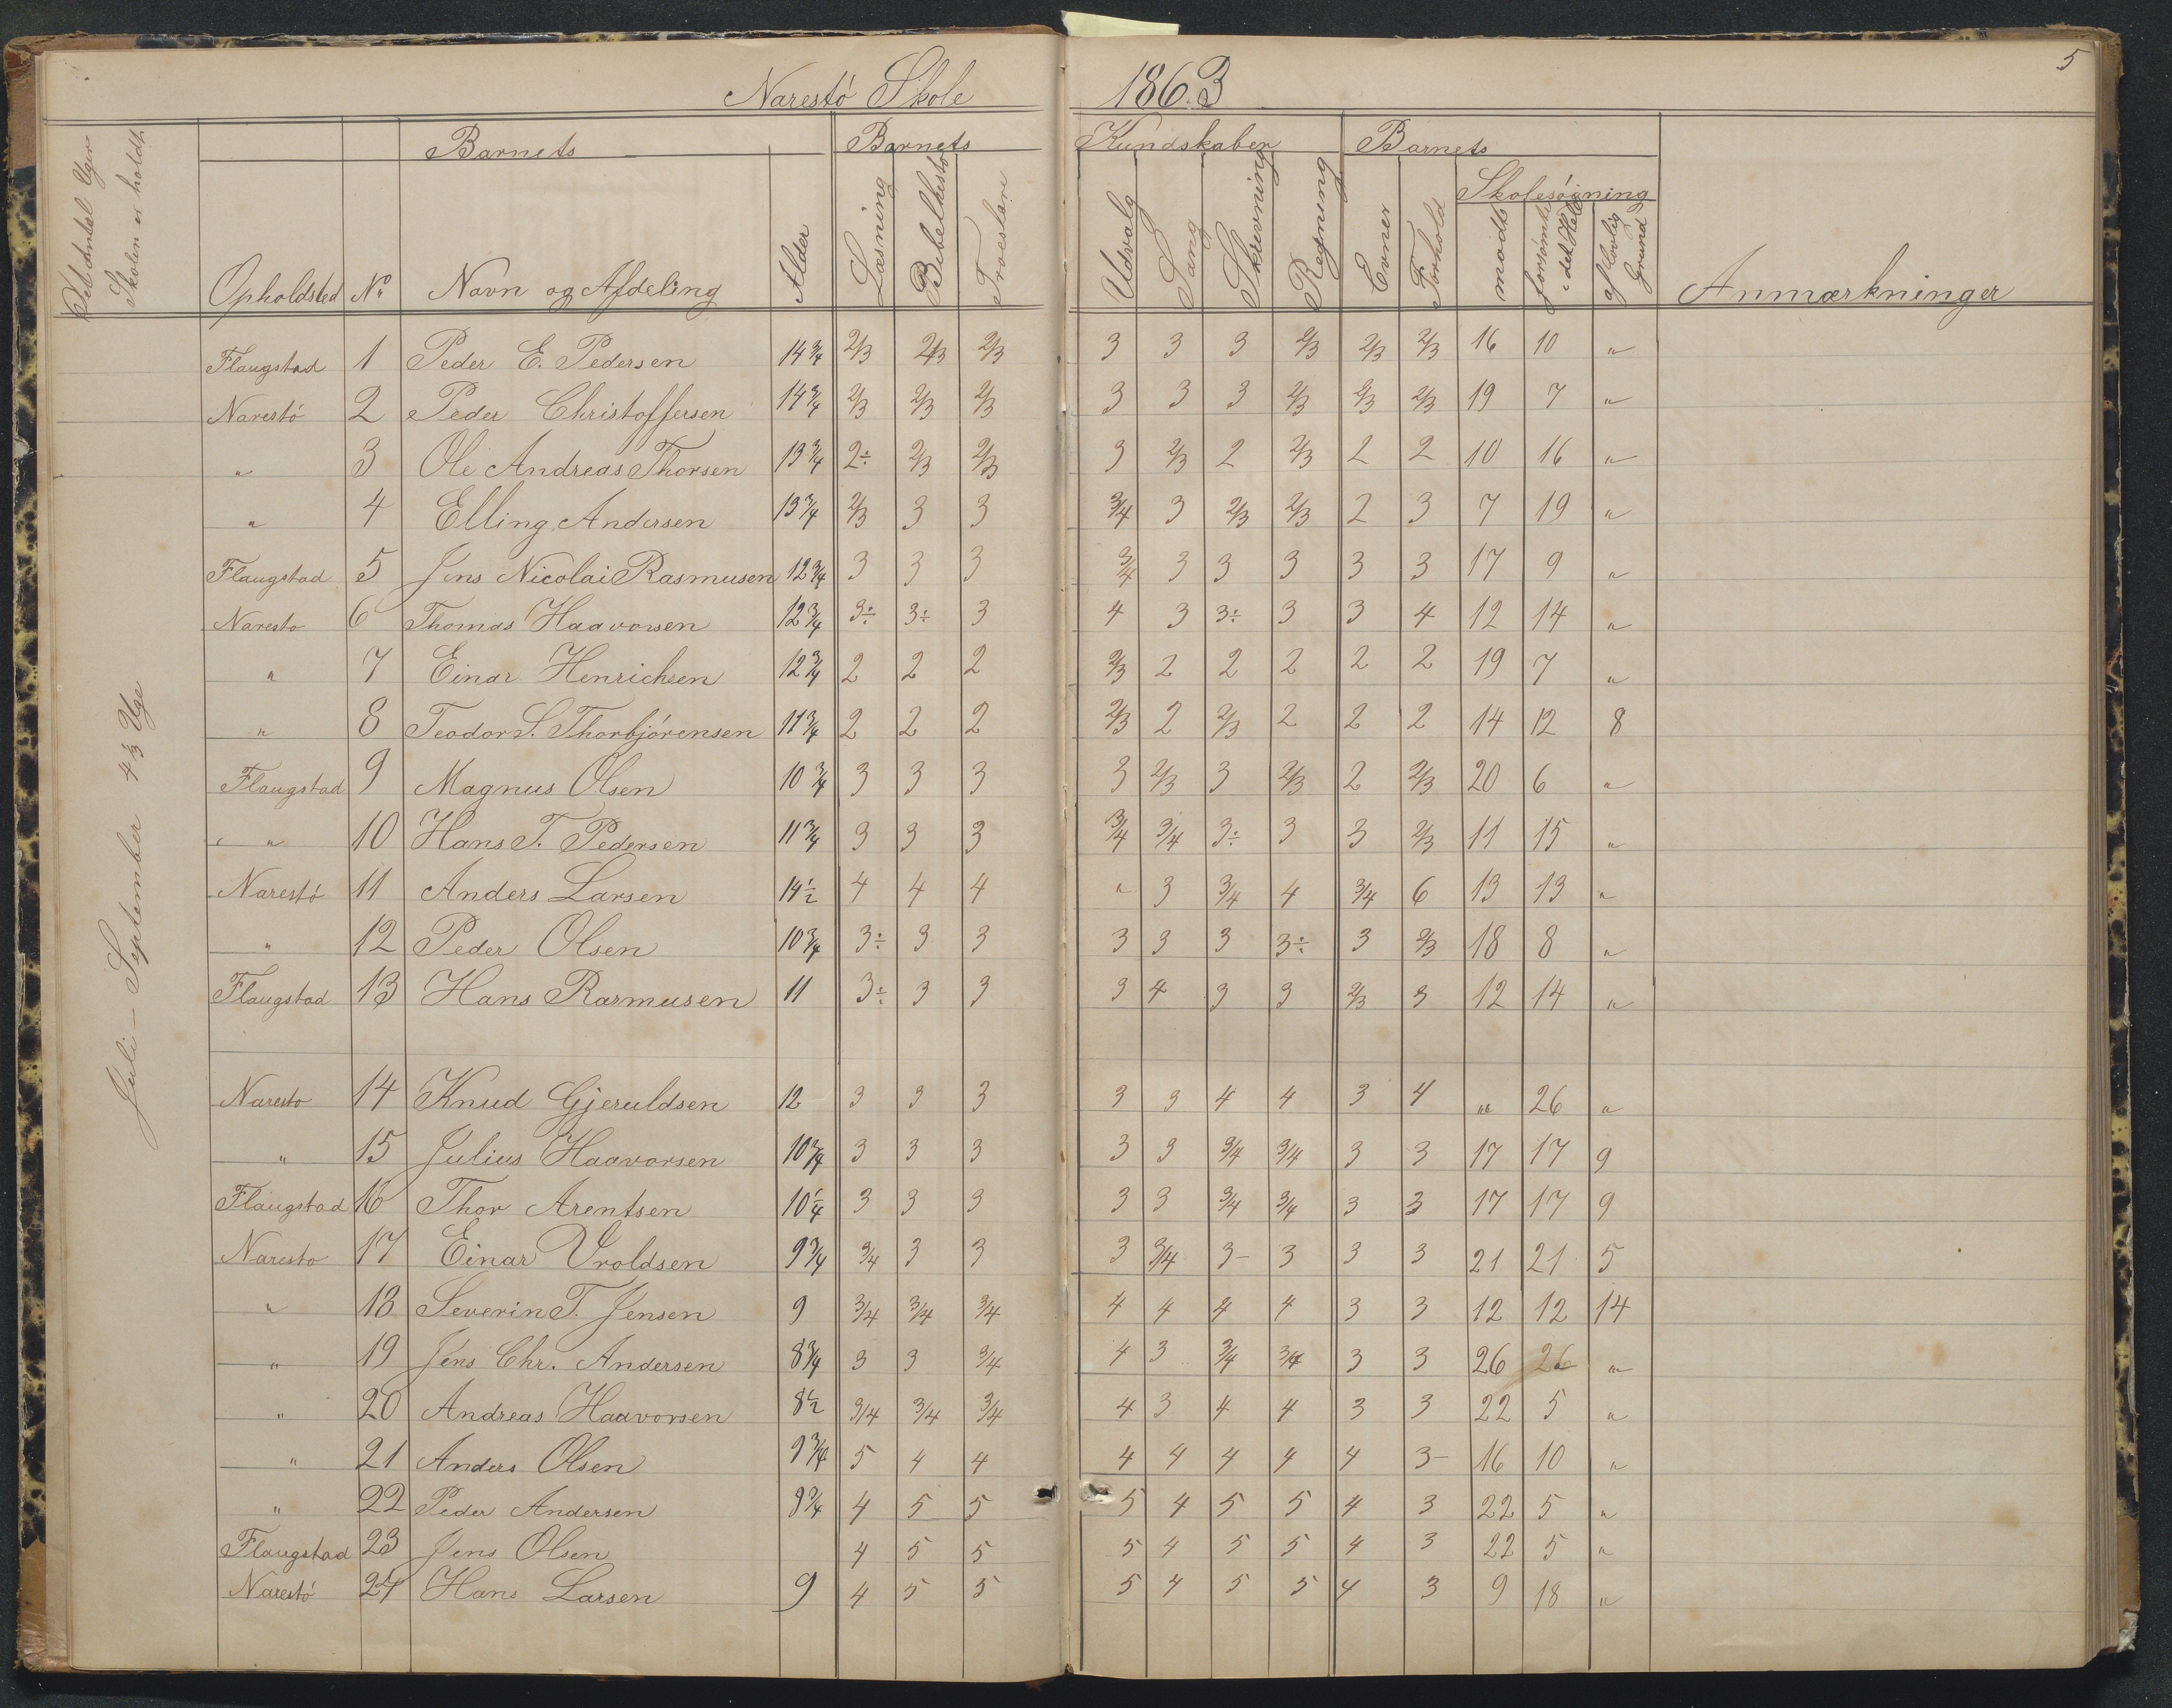 5
Narestö Skole 1863
Det Antal Uger Skolen er holdt
Barnets Barnets Kundskaber Barnets
Skolesøgning
Opholdsted No Navn og Afdeling Alder Læsning Bibelhisto Troeslære Udvalg Sang Skrevning Regning Evner Forhold mødt forsømt i det Hele af lovlig Grund Anmærkninger
Juli - September 4⅓ Uge
Flaugstad 1 Peder E. Pedersen 14¾ 2/3 2/3 2/3 3 3 3 2/3 2/3 2/3 16 10 "
Narestö 2 Peder Christoffersen 14¾ 2/3 2/3 2/3 3 3 3 2/3 2/3 2/3 19 7 "
" 3 Ole Andreas Thorsen 13¾ 2÷ 2/3 2/3 3 2/3 2 2/3 2 2 10 16 "
" 4 Elling Andersen 13¾ 2/3 3 3 3/4 3 2/3 2/3 2 3 7 19 "
Flaugstad 5 Jens Nicolai Rasmusen 12¾ 3 3 3 3/4 3 3 3 3 3 17 9 "
Naresto 6 Thomas Haavorsen 12¾ 3÷ 3÷ 3 4 3 3÷ 3 3 4 12 14 "
" 7 Einar Henrichsen 12¾ 2 2 2 2/3 2 2 2 2 2 19 7 "
" 8 Teodor S. Thorbjörensen 11¾ 2 2 2 2/3 2 2/3 2 2 2 14 12 8
Flaugstad 9 Magnus Olsen 10¾ 3 3 3 3 2/3 3 2/3 2 2/3 20 6 "
" 10 Hans T. Pedersen 11¾ 3 3 3 3/4 3/4 3÷ 3 3 2/3 11 15 "
Narestö 11 Anders Larsen 14½ 4 4 4 " 3 3/4 4 3/4 6 13 13 "
" 12 Peder Olsen 10¾ 3÷ 3 3 3 3 3 3÷ 3 2/3 18 8 "
Flaugstad 13 Hans Rasmusen 11 3÷ 3 3 3 4 3 3 2/3 3 12 14 "
Naresto 14 Knud Gjeruldsen 12 3 3 3 3 3 4 4 3 4 " 26 "
" 15 Julius Haavorsen 10¾ 3 3 3 3 3 3/4 3/4 3 3 17 17 9
Flaugstad 16 Thor Arentsen 10¼ 3 3 3 3 3 3/4 3/4 3 3 17 17 9
Naresto 17 Einar Vroldsen 9¾ 3/4 3 3 3 3/4 3- 3 3 3 21 21 5
" 18 Severin T. Jensen 9 3/4 3/4 3/4 4 4 4 4 3 3 12 12 14
" 19 Jens Chr. Andersen 8¾ 3 3 3/4 4 3 3/4 3/4 3 3 26 26 "
" 20 Andreas Haavorsen 8½ 3/4 3/4 3/4 4 3 4 4 3 3 22 5 "
" 21 Anders Olsen 9¾ 5 4 4 4 4 4 4 4 3- 16 10 "
" 22 Peder Andersen 9¾ 4 5 5 5 4 5 5 4 3 22 5 "
Flaugstad 23 Jens Olsen 4 5 5 5 4 5 5 4 3 22 5 "
Narestö 24 Hans Larsen 9 4 5 5 5 4 5 5 4 3 9 18 "